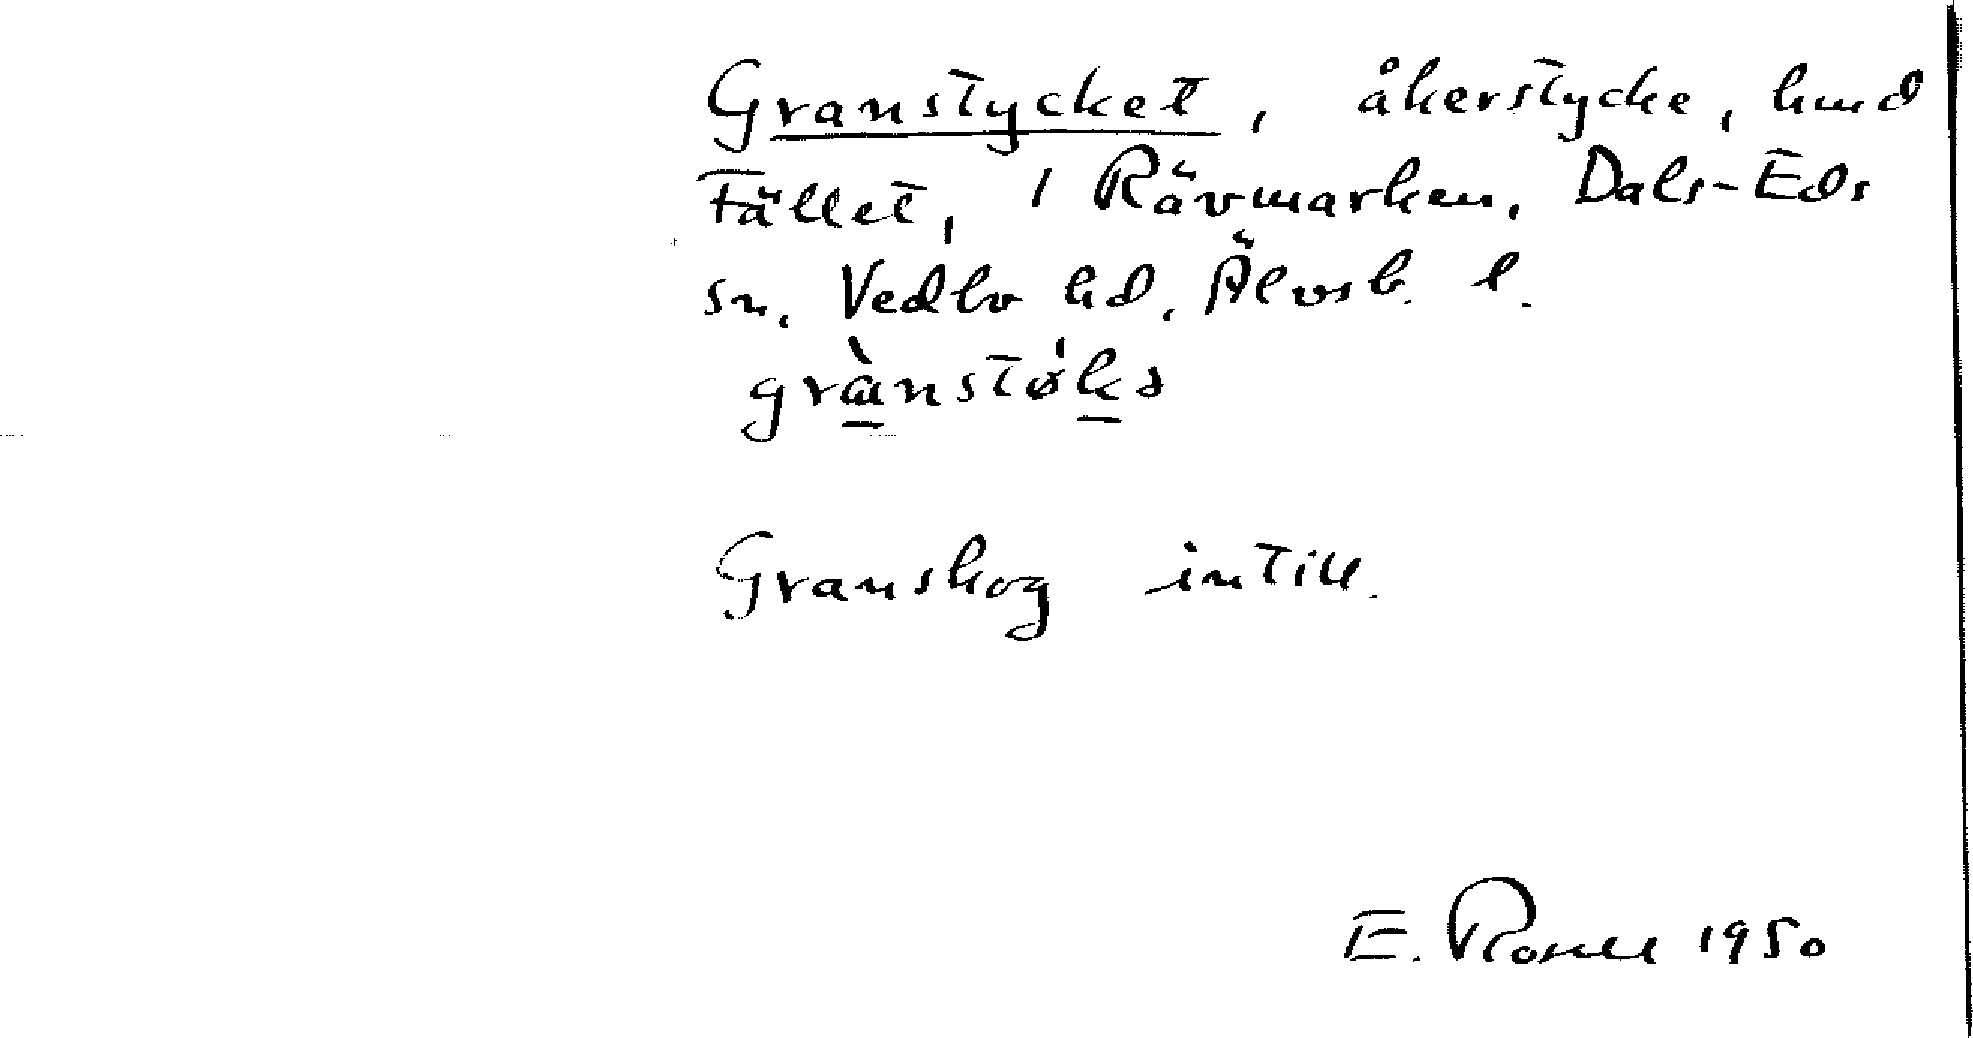 Granstycket, åkerstycke, hmd
Fället, 1 Rävmarken, Dals-Eds
sn, Vedbo hd, Älvsb. l.
grànstø'kə
Granskog intill.
E. Rosell 1950